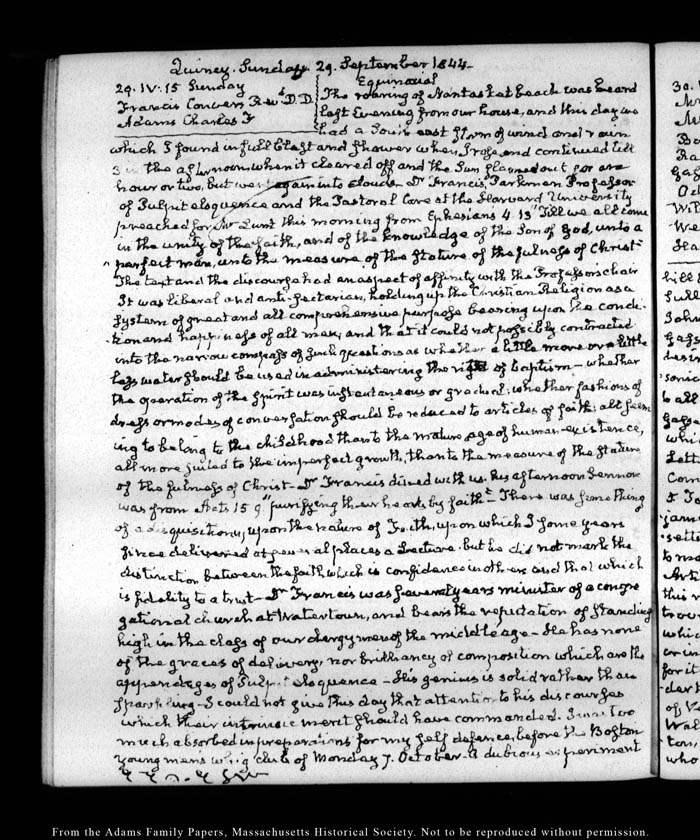 Quincy. Sunday 29. September 1844.
29. IV:15 Sunday Equinoxial
Francis Convers Revd D.D. The roaring of Nantasket beach was heard
Adams Charles F last Evening from our house, and this day we
had a South east storm of wind and rain
which I found in full blast and shower when I rose, and continued till
in the afternoon when it cleared off and the Sun flamed out for an
hour or two, but went again into clouds. Dr Francis, Parkman Professor
of Pulpit eloquence and the Pastoral Care at the Harvard University
preached for Mr Lunt this morning from Ephesians 4. 13 "Till we all come
in the unity of the faith, and of the knowledge of the Son of God, unto a
perfect man, unto the measure of the stature of the fulness of Christ"
The text and the discourse had an aspect of affinity with the Professor's chair
It was liberal and anti-sectarian, holding up the Christian Religion as a
system of great and all comprehensive purpose bearing upon the condi-
tion and happiness of all men, and that it could not possibly contracted
into the narrow compass of such questions as whether a little more or a little
less water should be used in administering the rite of baptism - whether
the operation of the Spirit was instantaneous or gradual; whether fashions of
dress or modes of conversation should be reduced to articles of faith; all seem
ing to belong to the childhood than to the mature age of human existence,
all more suited to the imperfect growth, than to the measure of the stature
of the fulness of Christ - Dr Francis dined with us. His afternoon Sermon
was from Acts 15 9. "purifying their hearts by faith" - There was something
of a disquisition, upon the nature of Faith, upon which I some years
since delivered at several places a Lecture. but he did not mark the
distinction between the faith which is confidence in others and that which
is fidelity to a trust - Dr Francis was several years minister of a congre
gational church at Watertown, and bears the reputation of standing
high in the class of our clergymen of the middle age - He has none
of the graces of delivery, nor brilliancy of composition which are the
appendages of Pulpit eloquence - His genius is solid rather than
sparkling - I could not give this day that attention to his discourses
which their intrinsic merit should have commanded. I was too
much absorbed in preparations for my self defence, before the Boston
young mens whig club of Monday 7. October - A dubious experiment
From the Adams Family Papers, Massachusetts Historical Society. Not to be reproduced without permission.